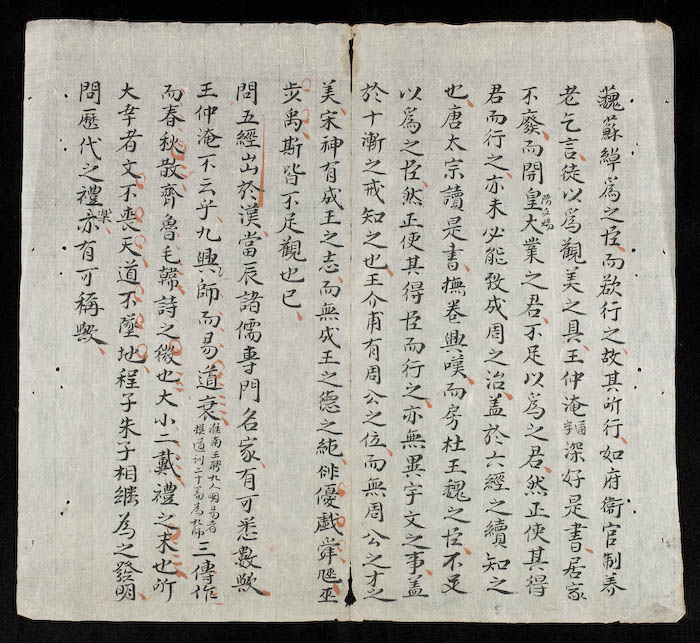 蘓蘇綽為之臣而欲行之故其所行如府衛官制养
老乞言徒以為觀美之具王仲淹通字深好是書居家
不廢而開皇大業隋文煬之君不足以為之君然正使其得
君而行之亦未必能致成周之治盖於六經之續知之
也唐太宗讀是書撫卷興嘆而房杜王魏之臣不足
以為之臣然正使其得臣而行之亦無異宇文之事盖
於十漸之戒知之也王介甫有周公之位而無周公之才之
美宋神有成王之志而無成王之德之純俳優戯舜尫巫
步禹斯皆不足觀也已
問五經出於漢當辰諸儒專門名家有可悉數歟
王仲淹不云乎九興師而易道衰淮南王聘九人明易者撰道訓二十篇為九師三傳作
而春秋散齊魯毛韓詩之微也大小二戴禮之末也所
大幸者文不喪天道不墜地程子朱子相继為之發明
問歷代之禮樂亦有可稱歟